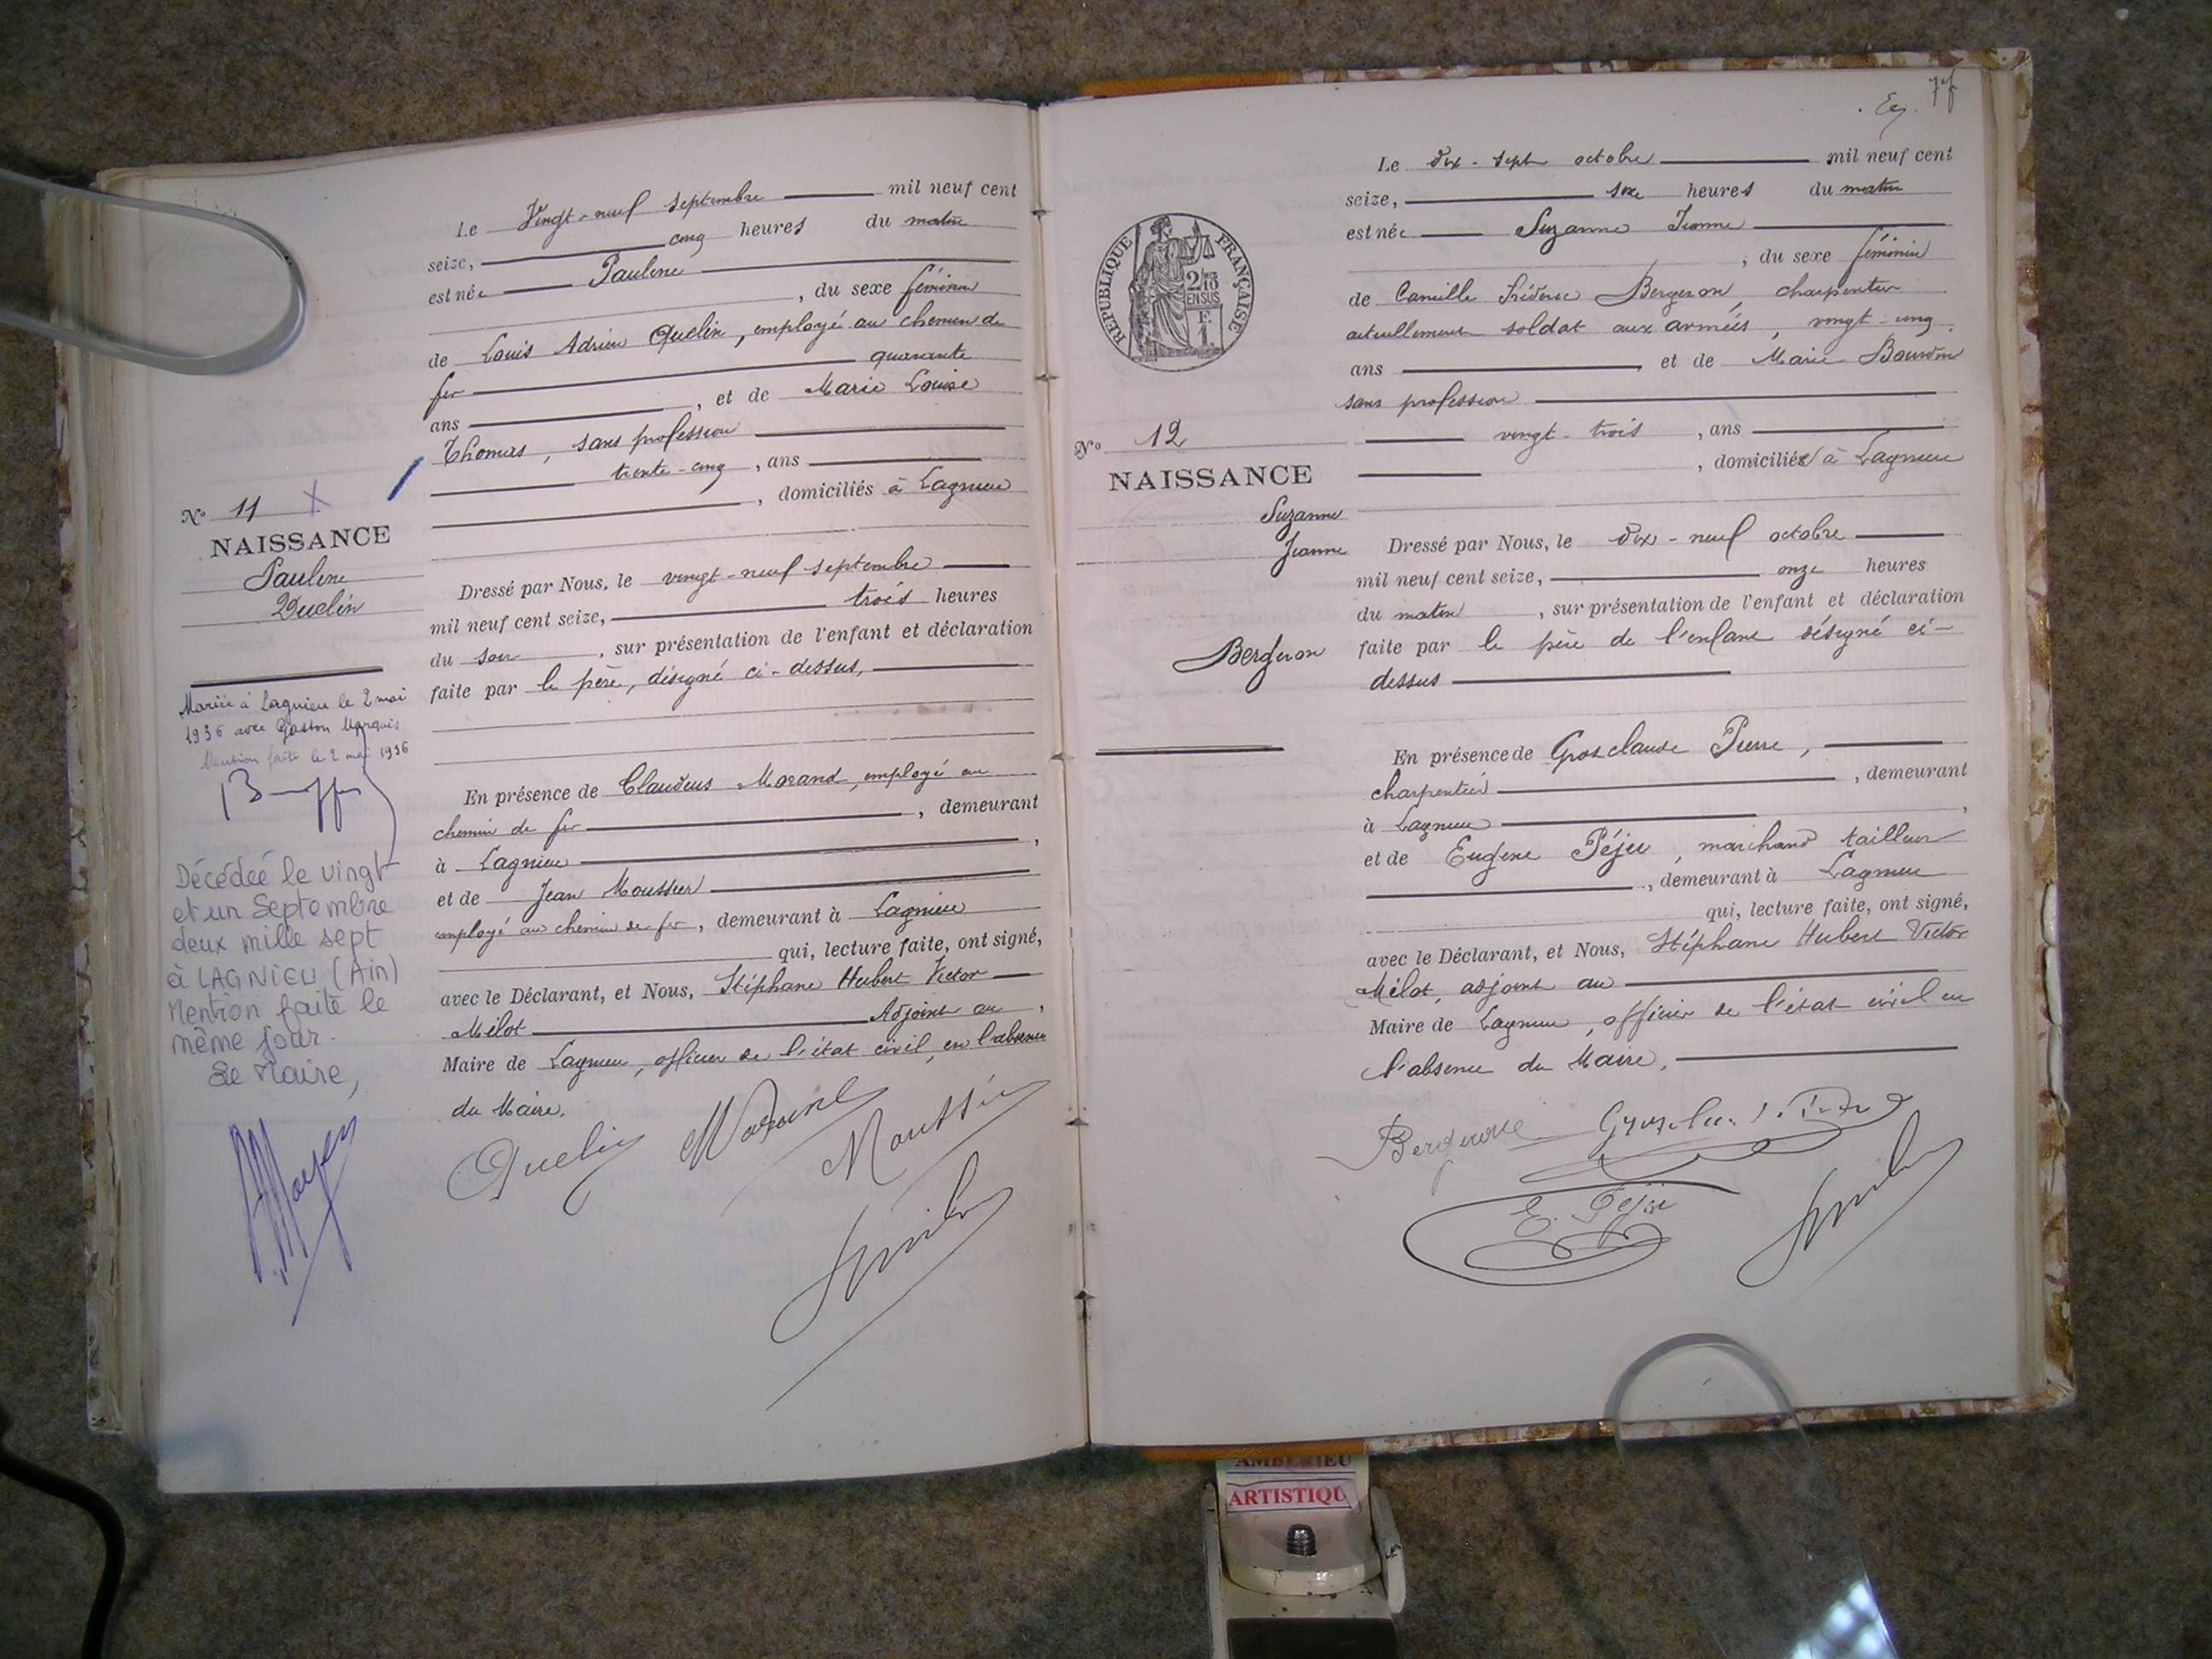 Le Vingt-neuf septembre mil neuf cent
seize, cinq heures du matin
est née Pauline
, du sexe féminin
de Louis Adrien Quelin, employé au chemin de
fer quarante
ans , et de Marie Louise
Thomas, sans profession
trente-cinq , ans
, domiciliés à Lagnieu
N° 11
NAISSANCE
Pauline
Quelin
Dressé par Nous, le vingt-neuf septembre
mil neuf cent seize, trois heures
du soir , sur présentation de l'enfant et déclaration
faite par le père, désigné ci-dessus,
Mariée à Lagnieu le 2 mai
1936 avec Gaston Marquis
Mention faite le 2 mai 1936
En présence de Claudius Morand, employé au
chemin de fer , demeurant
à Lagnieu ,
et de Jean Moussier
employé au chemin de fer , demeurant à Lagnieu
qui, lecture faite, ont signé,
avec le Déclarant, et Nous, Stéphane Hubert Victor
Mélot Adjoint au ,
Maire de Lagnieu, officier de l'état civil, en l'absence
du Maire.
Décédée le vingt
et un Septembre
deux mille sept
à LAGNIEU (Ain)
Mention faite le
même jour.
Le Maire,
Quelin Morand
Le dix-sept octobre mil neuf cent
seize, heures du matin
est née Suzanne Jeanne
, du sexe féminin
de Camille Fréderic Bergeron, charpentier
actuellement soldat aux armées, vingt-cinq
ans et de Marie Bourdin
sans profession
vingt-trois , ans
, domiciliés à Lagnieu
RÉPUBLIQUE FRANÇAISE
2/10
EN SUS
F.
1.
N° 12
NAISSANCE
Suzanne
Jeanne
Bergeron
Dressé par Nous, le dix-neuf octobre
mil neuf cent seize, onze heures
du matin , sur présentation de l'enfant et déclaration
faite par le père de l'enfant désigné ci-
dessus
En présence de Grosclaude Pierre,
charpentier , demeurant
à Lagnieu ,
et de Eugène Péju, marchand tailleur
, demeurant à Lagnieu
qui, lecture faite, ont signé,
avec le Déclarant, et Nous, Stéphane Hubert Victor
Mélot, adjoint au
Maire de Lagnieu, officier de l'état civil en
l'absence du Maire.
Bergeron
E. Péju
AMBERIEU
ARTISTIQU